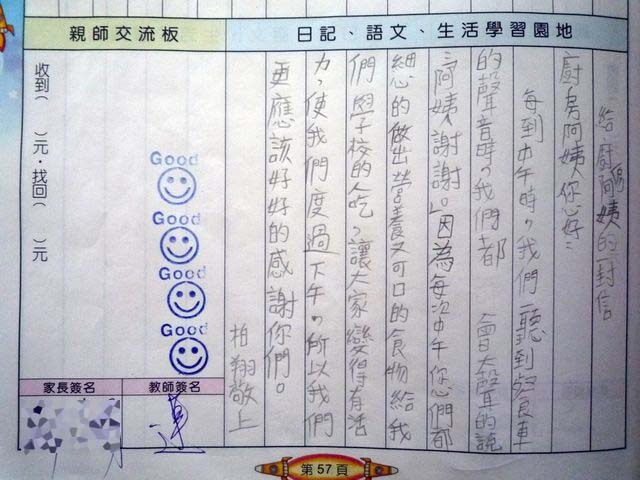 親師交流板
日記、語文、生活學習園地
給廚房阿姨的一封信
廚房阿姨你好：
每到中午時，我們一聽到發食車
的聲音時，我們都會大聲的說
「阿姨謝謝。」因為每次中午您們都
細心的做出營養又可口的食物給我
們學校的人吃，讓大家變得有活
力，使我們度過下午，所以我們
更應該好好的感謝你們。
柏翔敬上
收到（　）元．找回（　）元
Good
Good
Good
Good
家長簽名
教師簽名
第57頁